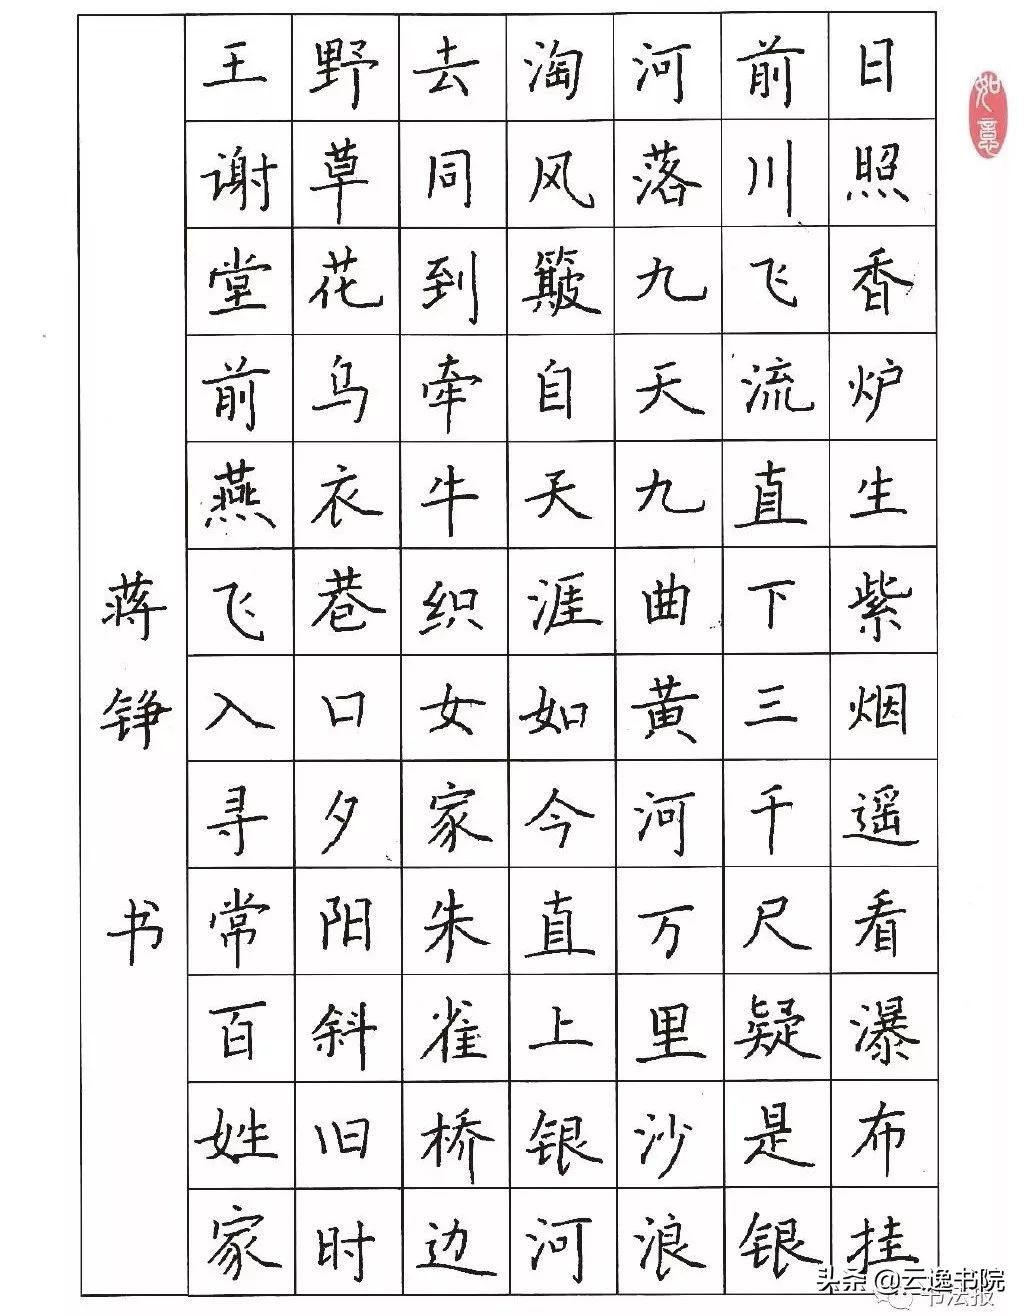 日照香炉生紫烟遥看瀑布挂
前川飞流直下三千尺疑是银
河落九天九曲黄河万里沙浪
淘风簸自天涯如今直上银河
去同到牵牛织女家朱雀桥边
野草花乌衣巷口夕阳斜旧时
王谢堂前燕飞入寻常百姓家
蒋铮书
如意
头条@云逸书院
书法报